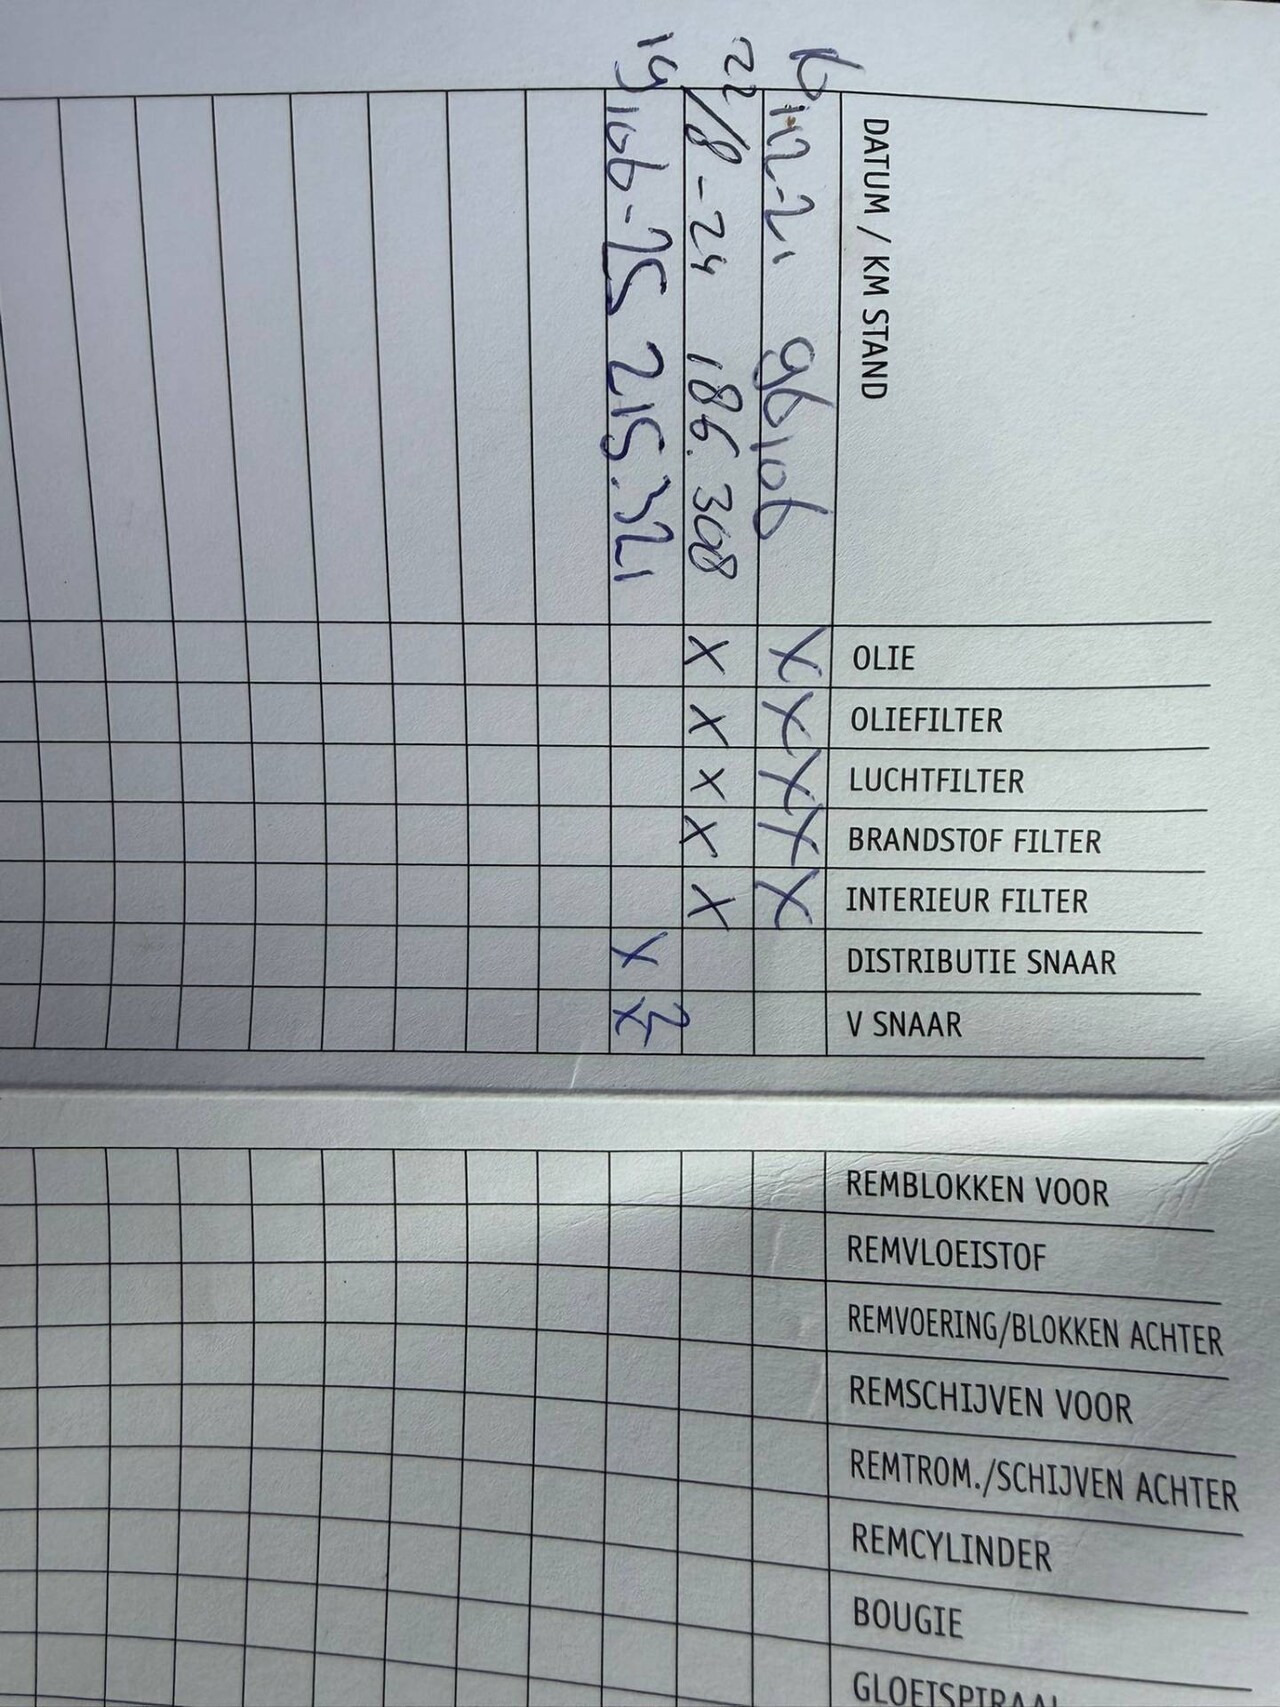 DATUM / KM STAND
6-12-21 96106
22/8-24 186.308
19/06-25 215.321
OLIE X X
OLIEFILTER X X
LUCHTFILTER X X
BRANDSTOF FILTER X X
INTERIEUR FILTER X X
DISTRIBUTIE SNAAR X
V SNAAR X
REMBLOKKEN VOOR
REMVLOEISTOF
REMVOERING/BLOKKEN ACHTER
REMSCHIJVEN VOOR
REMTROM./SCHIJVEN ACHTER
REMCYLINDER
BOUGIE
GLOEISPIRAAL